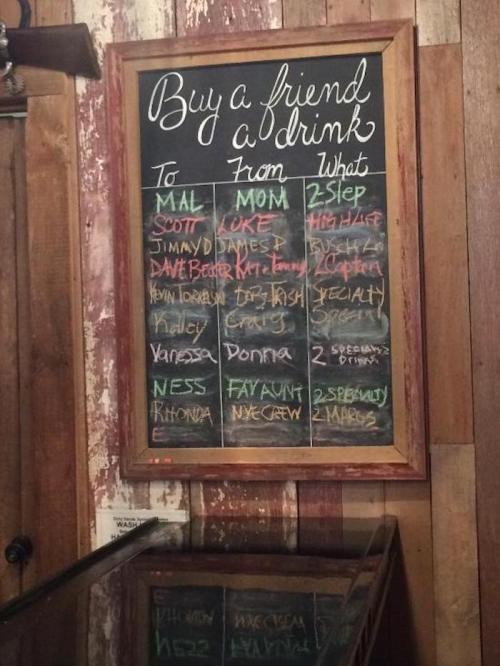 Buy a friend
a drink
To From What
MAL MOM 2 Step
SCOTT LUKE HIGH LIFE
JIMMY D JAMES P BUSCH
DAVE Kat + Tammy 2 Captain
KEVIN TRISH SPECIALTY
Kelley Craig Special
Vanessa Donna 2 SPECIALTY DRINKS
NESS FAV AUNT 2 SPECIALTY
RHONDA NYE CREW 2 MARGS
E
WASH